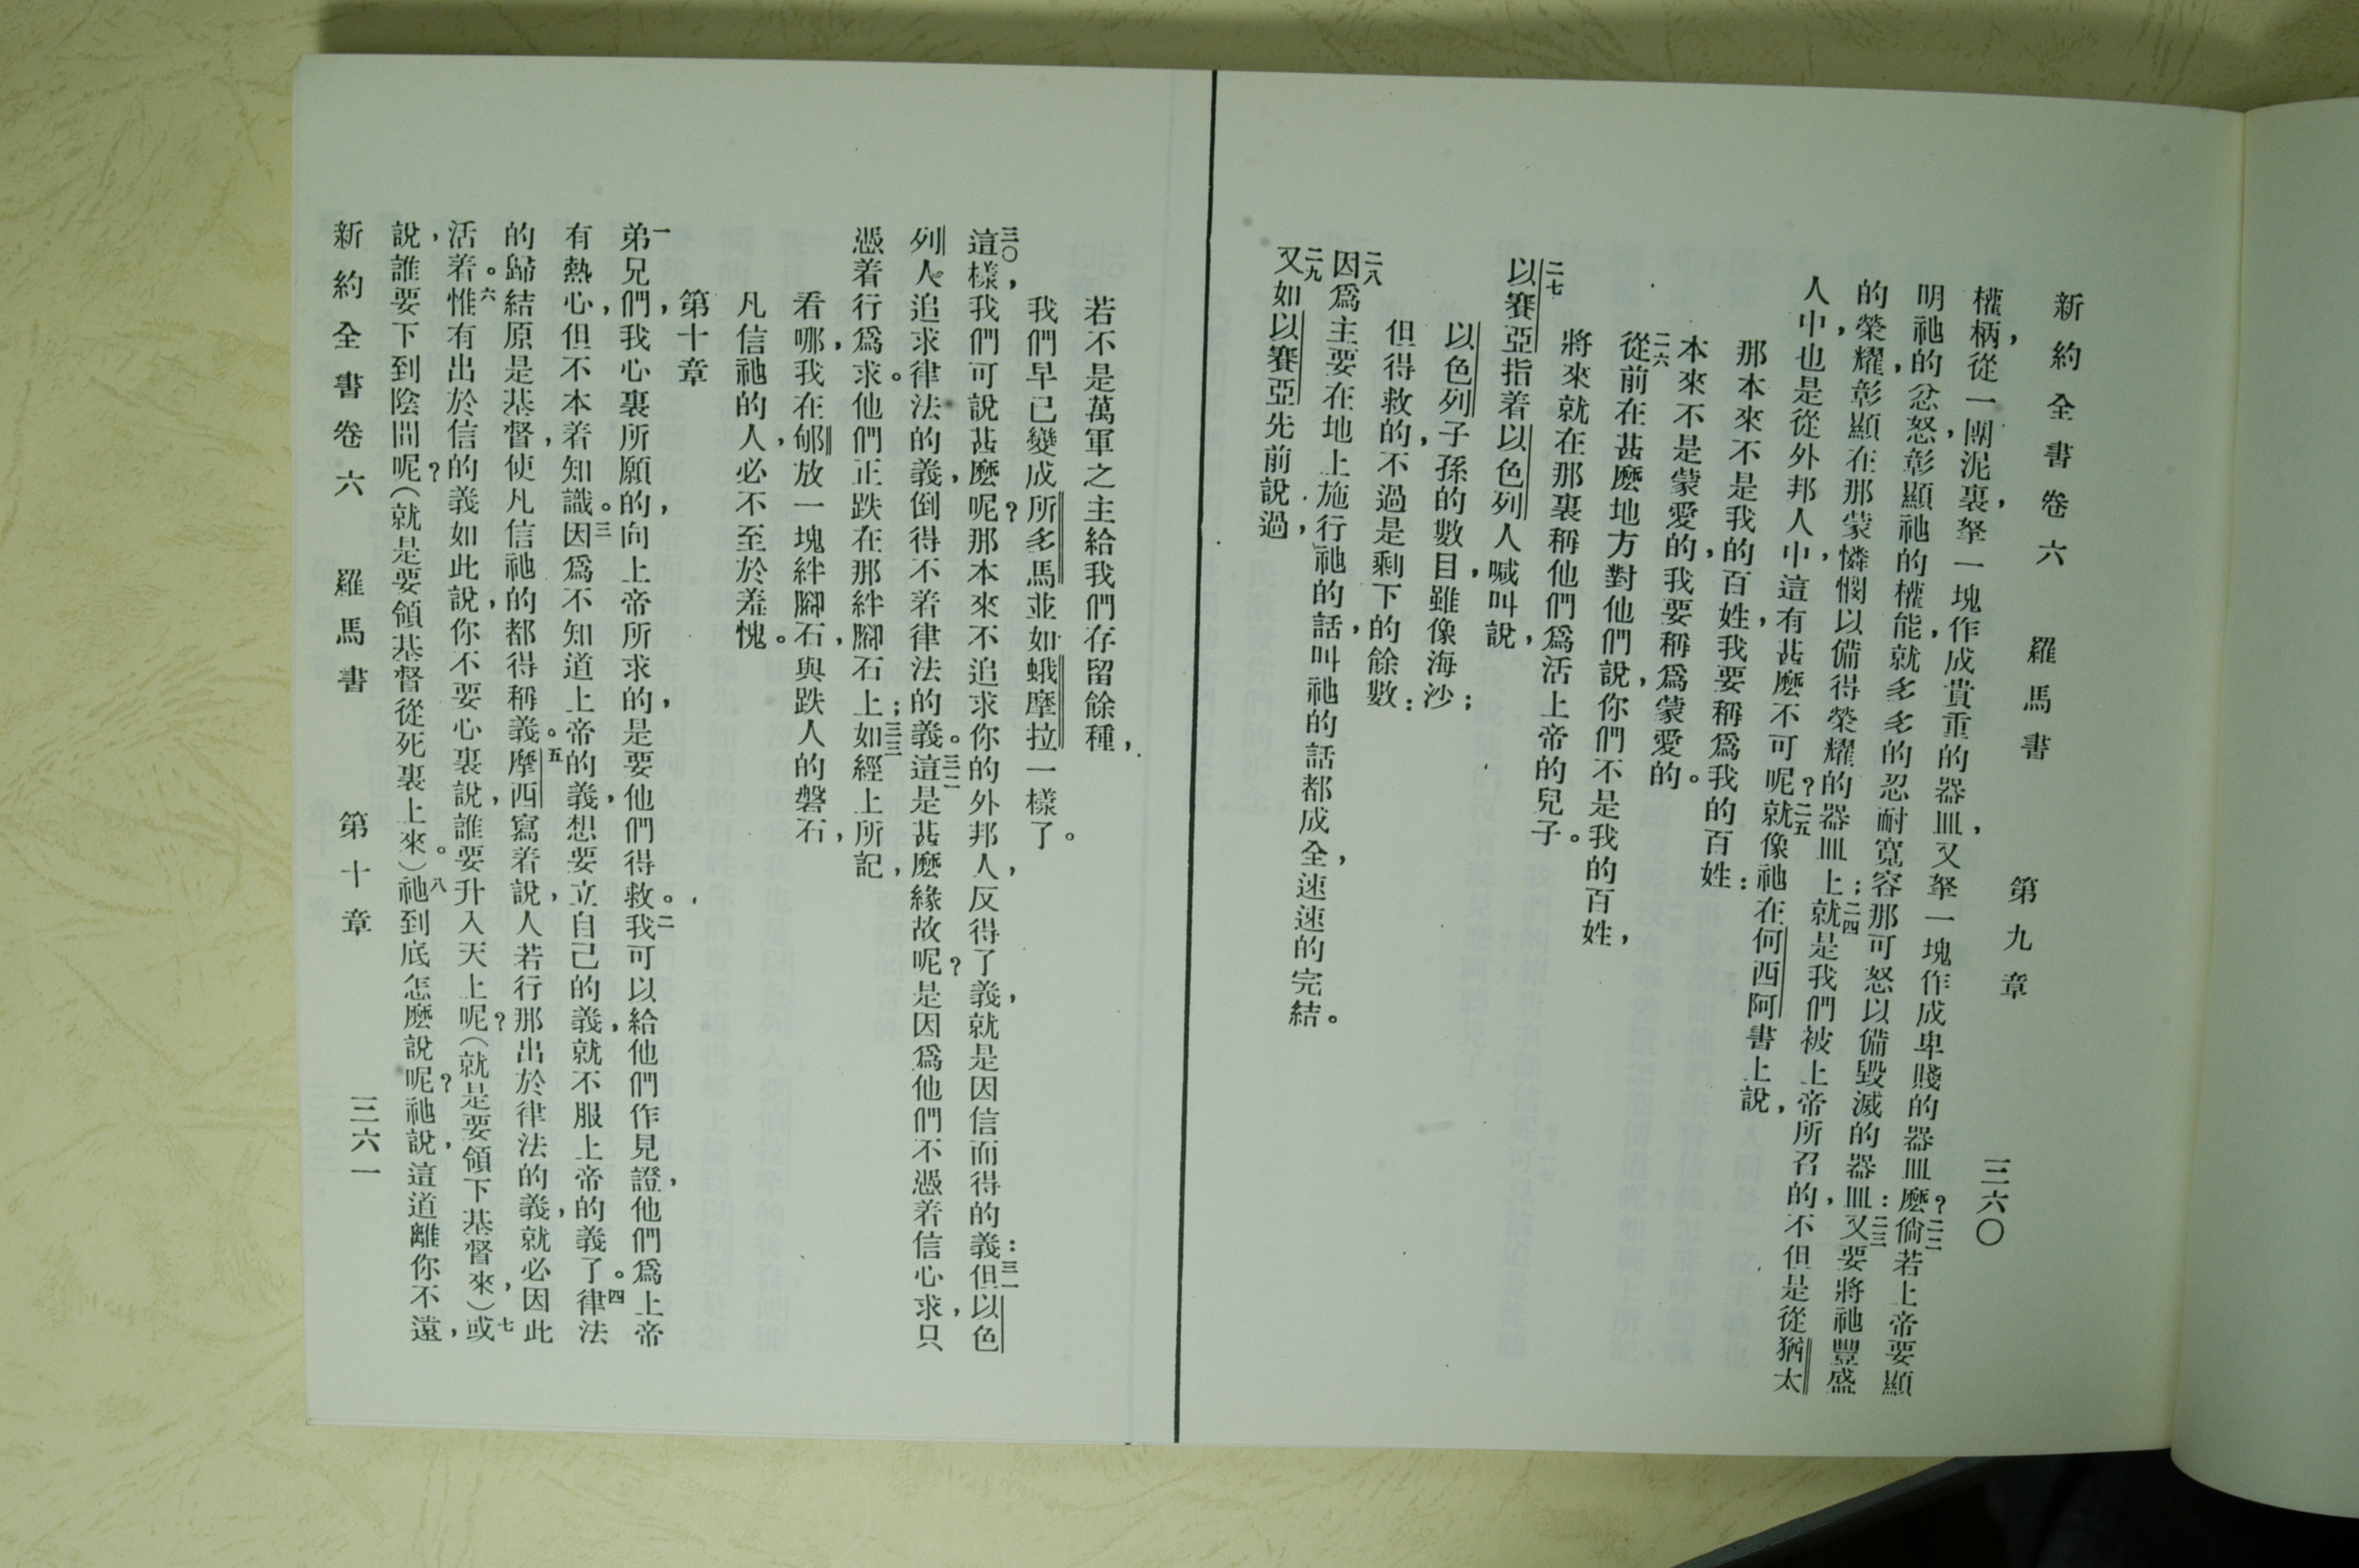 新約全書卷六　羅馬書　第九章　三六〇
權柄，從一團泥裏，拏一塊作成貴重的器皿，又拏一塊作成卑賤的器皿麼？二二倘若上帝要顯
明祂的忿怒，彰顯祂的權能，就多多的忍耐寬容那可怒以備毀滅的器皿：二三又要將祂豐盛
的榮耀，彰顯在那蒙憐憫以備得榮耀的器皿上；二四就是我們被上帝所召的，不但是從猶太
人中，也是從外邦人中，這有甚麼不可呢？二五就像祂在何西阿書上說，
那本來不是我的百姓，我要稱爲我的百姓：
本來不是蒙愛的，我要稱爲蒙愛的。
二六從前在甚麼地方對他們說，你們不是我的百姓，
將來就在那裏稱他們爲活上帝的兒子。
二七以賽亞指着以色列人喊叫說，
以色列子孫的數目，雖像海沙；
但得救的，不過是剩下的餘數：
二八因爲主要在地上施行祂的話，叫祂的話都成全，速速的完結。
二九又如以賽亞先前說過，
若不是萬軍之主給我們存留餘種，
我們早已變成所多馬並如蛾摩拉一樣了。
三〇這樣，我們可說甚麼呢？那本來不追求你的外邦人，反得了義，就是因信而得的義：三一但以色
列人追求律法的義，倒得不着律法的義。三二這是甚麼緣故呢？是因爲他們不憑着信心求，只
憑着行爲求。他們正跌在那絆腳石上；三三如經上所記，
看哪，我在郇放一塊絆腳石，與跌人的磐石，
凡信祂的人，必不至於羞愧。
第十章
一弟兄們，我心裏所願的，向上帝所求的，是要他們得救。二我可以給他們作見證，他們爲上帝
有熱心，但不本着知識。三因爲不知道上帝的義，想要立自己的義，就不服上帝的義了。四律法
的歸結原是基督，使凡信祂的都得稱義。五摩西寫着說，人若行那出於律法的義，就必因此
活着。六惟有出於信的義如此說，你不要心裏說，誰要升入天上呢？（就是要領下基督來）七或
說，誰要下到陰間呢？（就是要領基督從死裏上來。）八祂到底怎麼說呢？祂說，這道離你不遠，
新約全書卷六　羅馬書　第十章　三六一